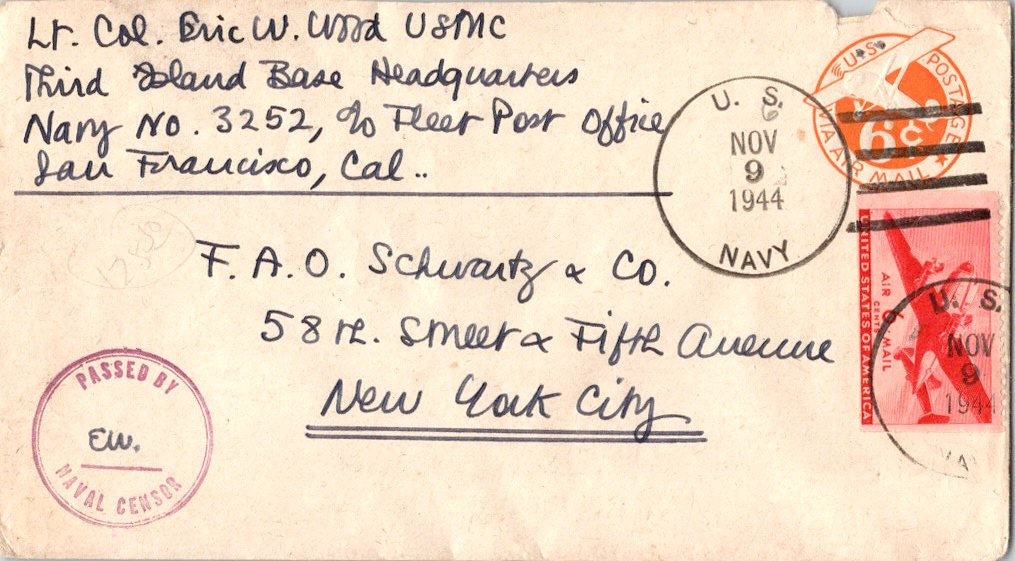 Lt. Col. Eric W. Wood USMC
Third Island Base Headquarters
Navy No. 3252, c/o Fleet Post Office
San Francisco, Cal..
U.S. POSTAGE
6¢
VIA AIR MAIL
U. S.
NOV
9
1944
NAVY
F. A. O. Schwartz & Co.
58th. Street & Fifth Avenue
New York City
UNITED STATES OF AMERICA
AIR MAIL
6 CENTS
U. S.
NOV
9
1944
PASSED BY
EW.
NAVAL CENSOR